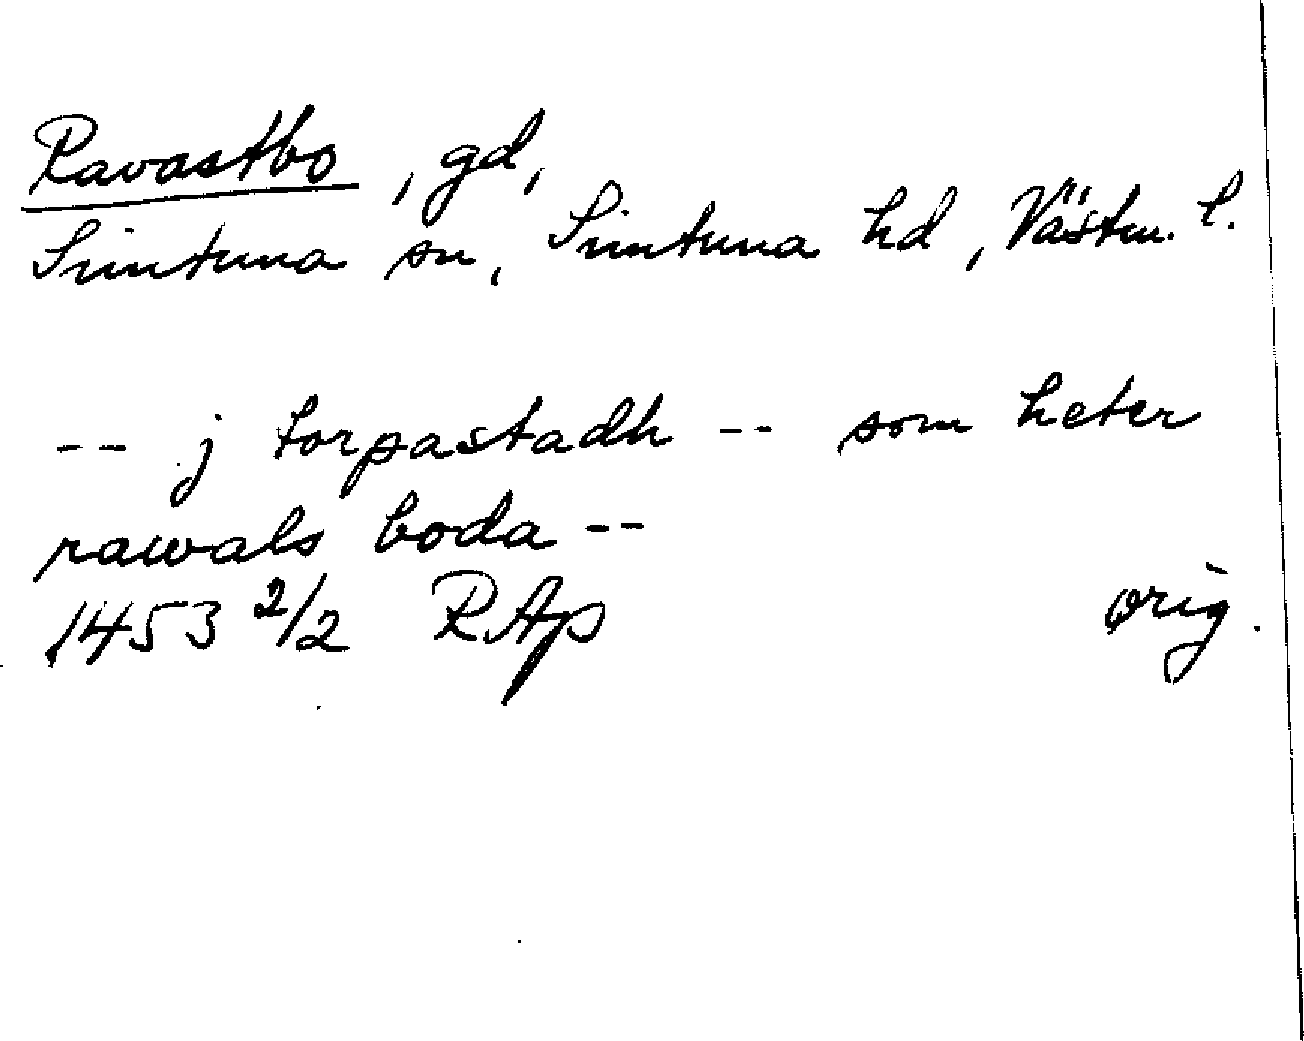 Ravastbo, gd,
Simtuna sn, Simtuna hd, Västm. l.
-- j torpastadh -- som heter
rawals boda --
1453 2/2 RAp orig.